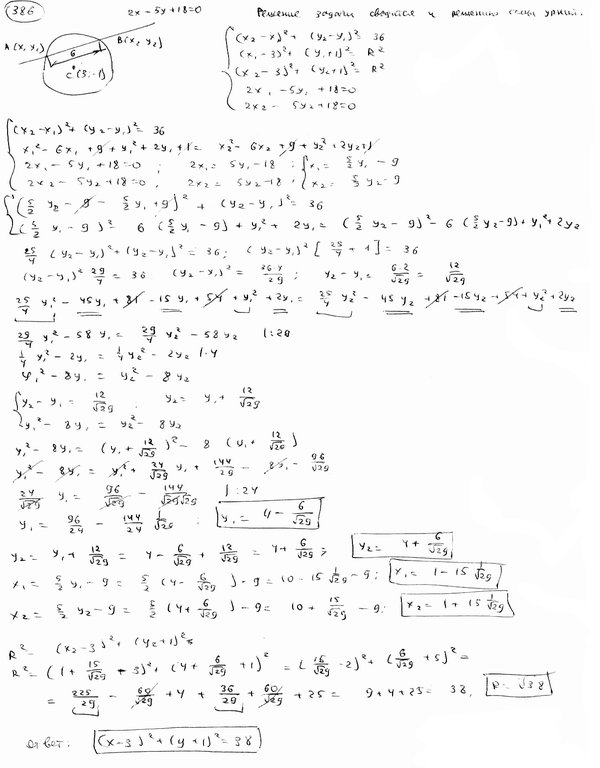 386
2x - 5y + 18 = 0
Решение задачи сводится к решению сист. уравн.
A(x, y₁) B(x₂ y₂)
6
c(3; -1)
(x₂ - x)² + (y₂ - y₁)² 36
(x₁ - 3)² + (y₁ + 1)² = R²
(x₂ - 3)² + (y₂ + 1)² = R²
2x₁ - 5y₁ + 18 = 0
2x₂ - 5y₂ + 18 = 0
(x₂ - x₁)² + (y₂ - y₁)² = 36
x₁² - 6x₁ + 9 + y₁² + 2y₁ + 1 = x₂² - 6x₂ + 9 + y₂² + 2y₂ + 1
2x₁ - 5y₁ + 18 = 0 ; 2x₁ = 5y₁ - 18 ; x₁ = 5/2 y₁ - 9
2x₂ - 5y₂ + 18 = 0, 2x₂ = 5y₂ - 18 ; x₂ = 5/2 y₂ - 9
(5/2 y₂ - 9 - 5/2 y₁ + 9)² + (y₂ - y₁)² = 36
(5/2 y₁ - 9)² - 6 (5/2 y₁ - 9) + y₁² + 2y₁ = (5/2 y₂ - 9)² - 6 (5/2 y₂ - 9) + y₁² + 2y₂
25/4 (y₂ - y₁)² + (y₂ - y₁)² = 36 ; (y₂ - y₁)² [25/4 + 1] = 36
(y₂ - y₁)² 29/4 = 36 (y₂ - y₁)² = 36·4/29 ; y₂ - y₁ = 6·2/√29 = 12/√29
25/4 y₁² - 45y₁ + 81 - 15y₁ + 54 + y₁² + 2y₁ = 25/4 y₂² - 45y₂ + 81 - 15y₂ + 54 + y₂² + 2y₂
29/4 y₁² - 58y₁ = 29/4 y₂² - 58y₂ |:29
1/4 y₁² - 2y₁ = 1/4 y₂² - 2y₂ |·4
y₁² - 8y₁ = y₂² - 8y₂
y₂ - y₁ = 12/√29 ; y₂ = y₁ + 12/√29
y₁² - 8y₁ = y₂² - 8y₂
y₁² - 8y₁ = (y₁ + 12/√29)² - 8 (y₁ + 12/√29)
y₁² - 8y₁ = y₁² + 24/√29 y₁ + 144/29 - 8y₁ - 96/√29
24/√29 y₁ = 96/√29 - 144/√29√29 | : 24
y₁ = 96/24 - 144/24 1/√29 ; y₁ = 4 - 6/√29
y₂ = y₁ + 12/√29 = 4 - 6/√29 + 12/√29 = 4 + 6/√29 ; y₂ = 4 + 6/√29
x₁ = 5/2 y₁ - 9 = 5/2 (4 - 6/√29) - 9 = 10 - 15 1/√29 - 9 ; x₁ = 1 - 15 1/√29
x₂ = 5/2 y₂ - 9 = 5/2 (4 + 6/√29) - 9 = 10 + 15/√29 - 9 ; x₂ = 1 + 15 1/√29
R² = (x₂ - 3)² + (y₂ + 1)² =
R² = (1 + 15/√29 - 3)² + (4 + 6/√29 + 1)² = (15/√29 - 2)² + (6/√29 + 5)² =
= 225/29 - 60/√29 + 4 + 36/29 + 60/√29 + 25 = 9 + 4 + 25 = 38, R = √38
Ответ: (x - 3)² + (y + 1)² = 38